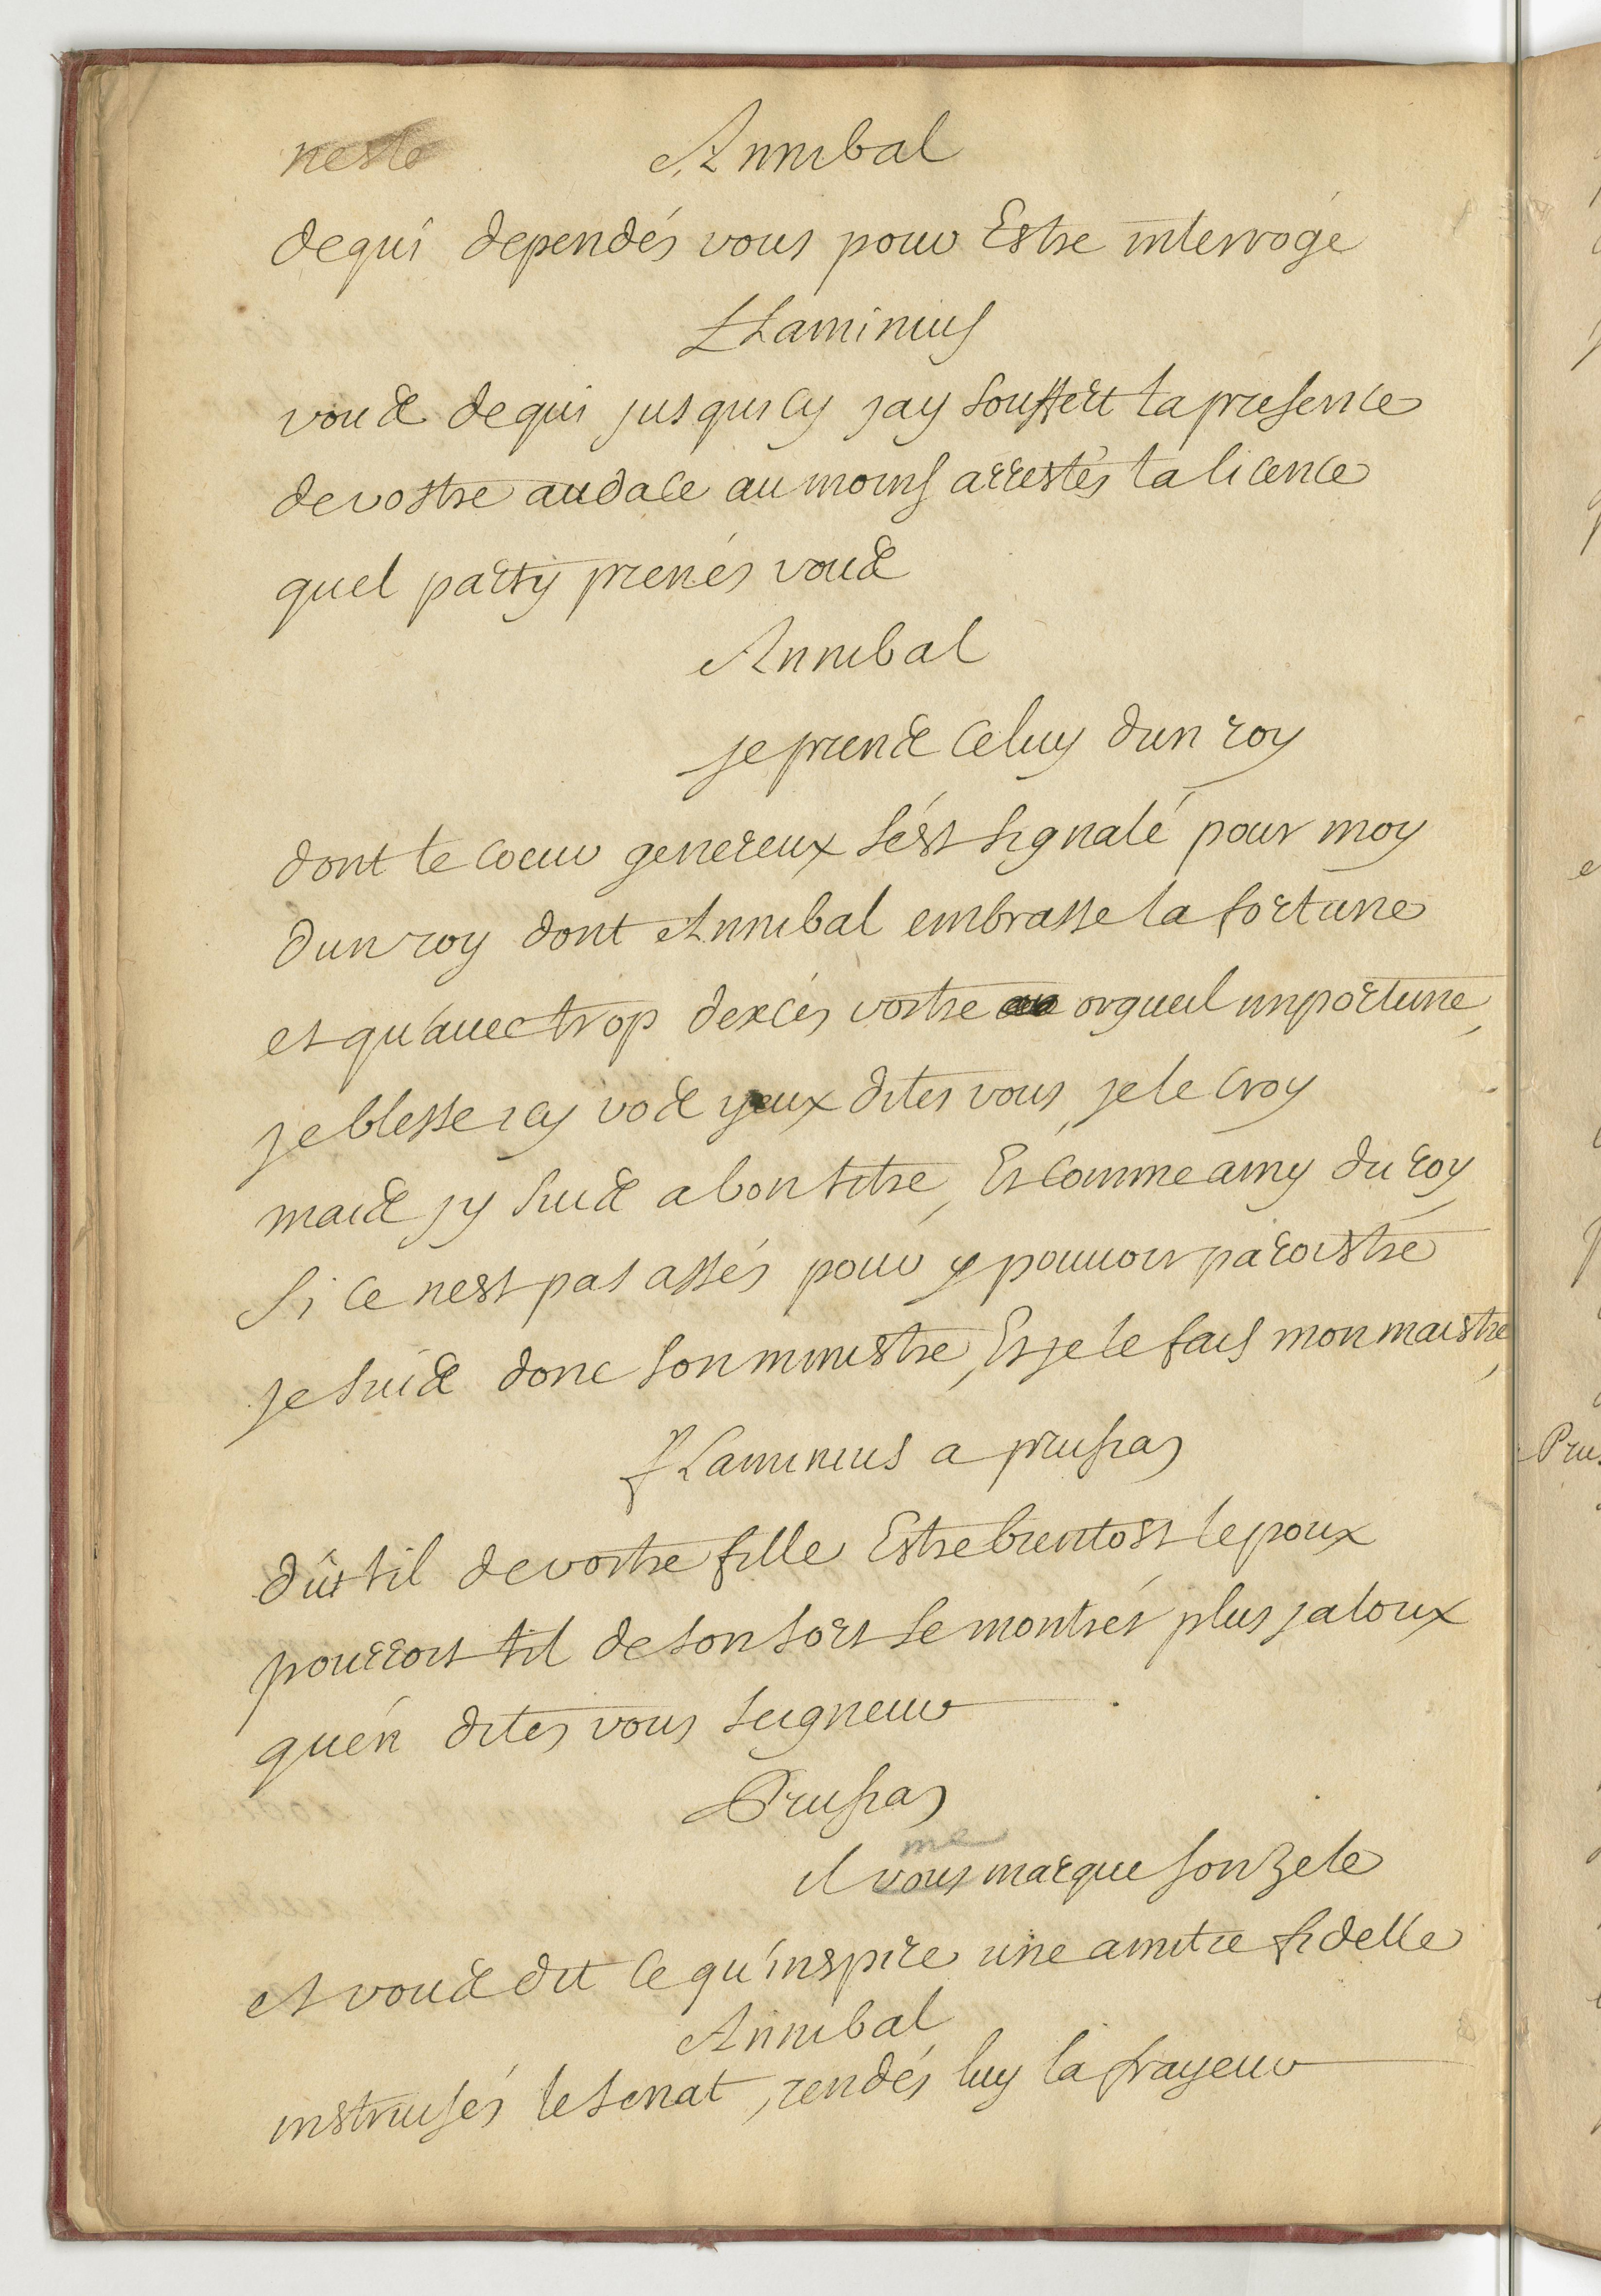 neste Annibal
de qui dependés vous pour Estre interrogé
Flaminius
vous de qui jusqu'icy jay souffert la presence
de vostre audace au moins arrestés la licence
quel party prenés vous
Annibal
je prens celuy dun roy
dont le coeur genereux s'est signalé pour moy
dun roy dont Annibal embrasse la fortune
et qu'avec trop dexcés vostre orgueil importune,
je blesse icy vos yeux dites vous, je le croy
mais jy suis a bon titre, Et comme amy du roy
si ce nest pas assés pour y pouvoir paroistre
je suis donc son ministre, Et je le fais mon maistre,
flaminius a prusias
dût il de vostre fille Estre bientost lepoux
pourroit til de son sort se montrer plus jaloux
qu'en dites vous seigneur
Prusias
me
il vous marque son zele
et vous dit ce qu'inspire une amitie fidelle
Annibal
instruisés le senat, rendés luy la frayeur